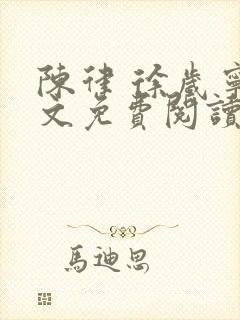 陳律 徐歲寧
文免費閱讀
馬迪思